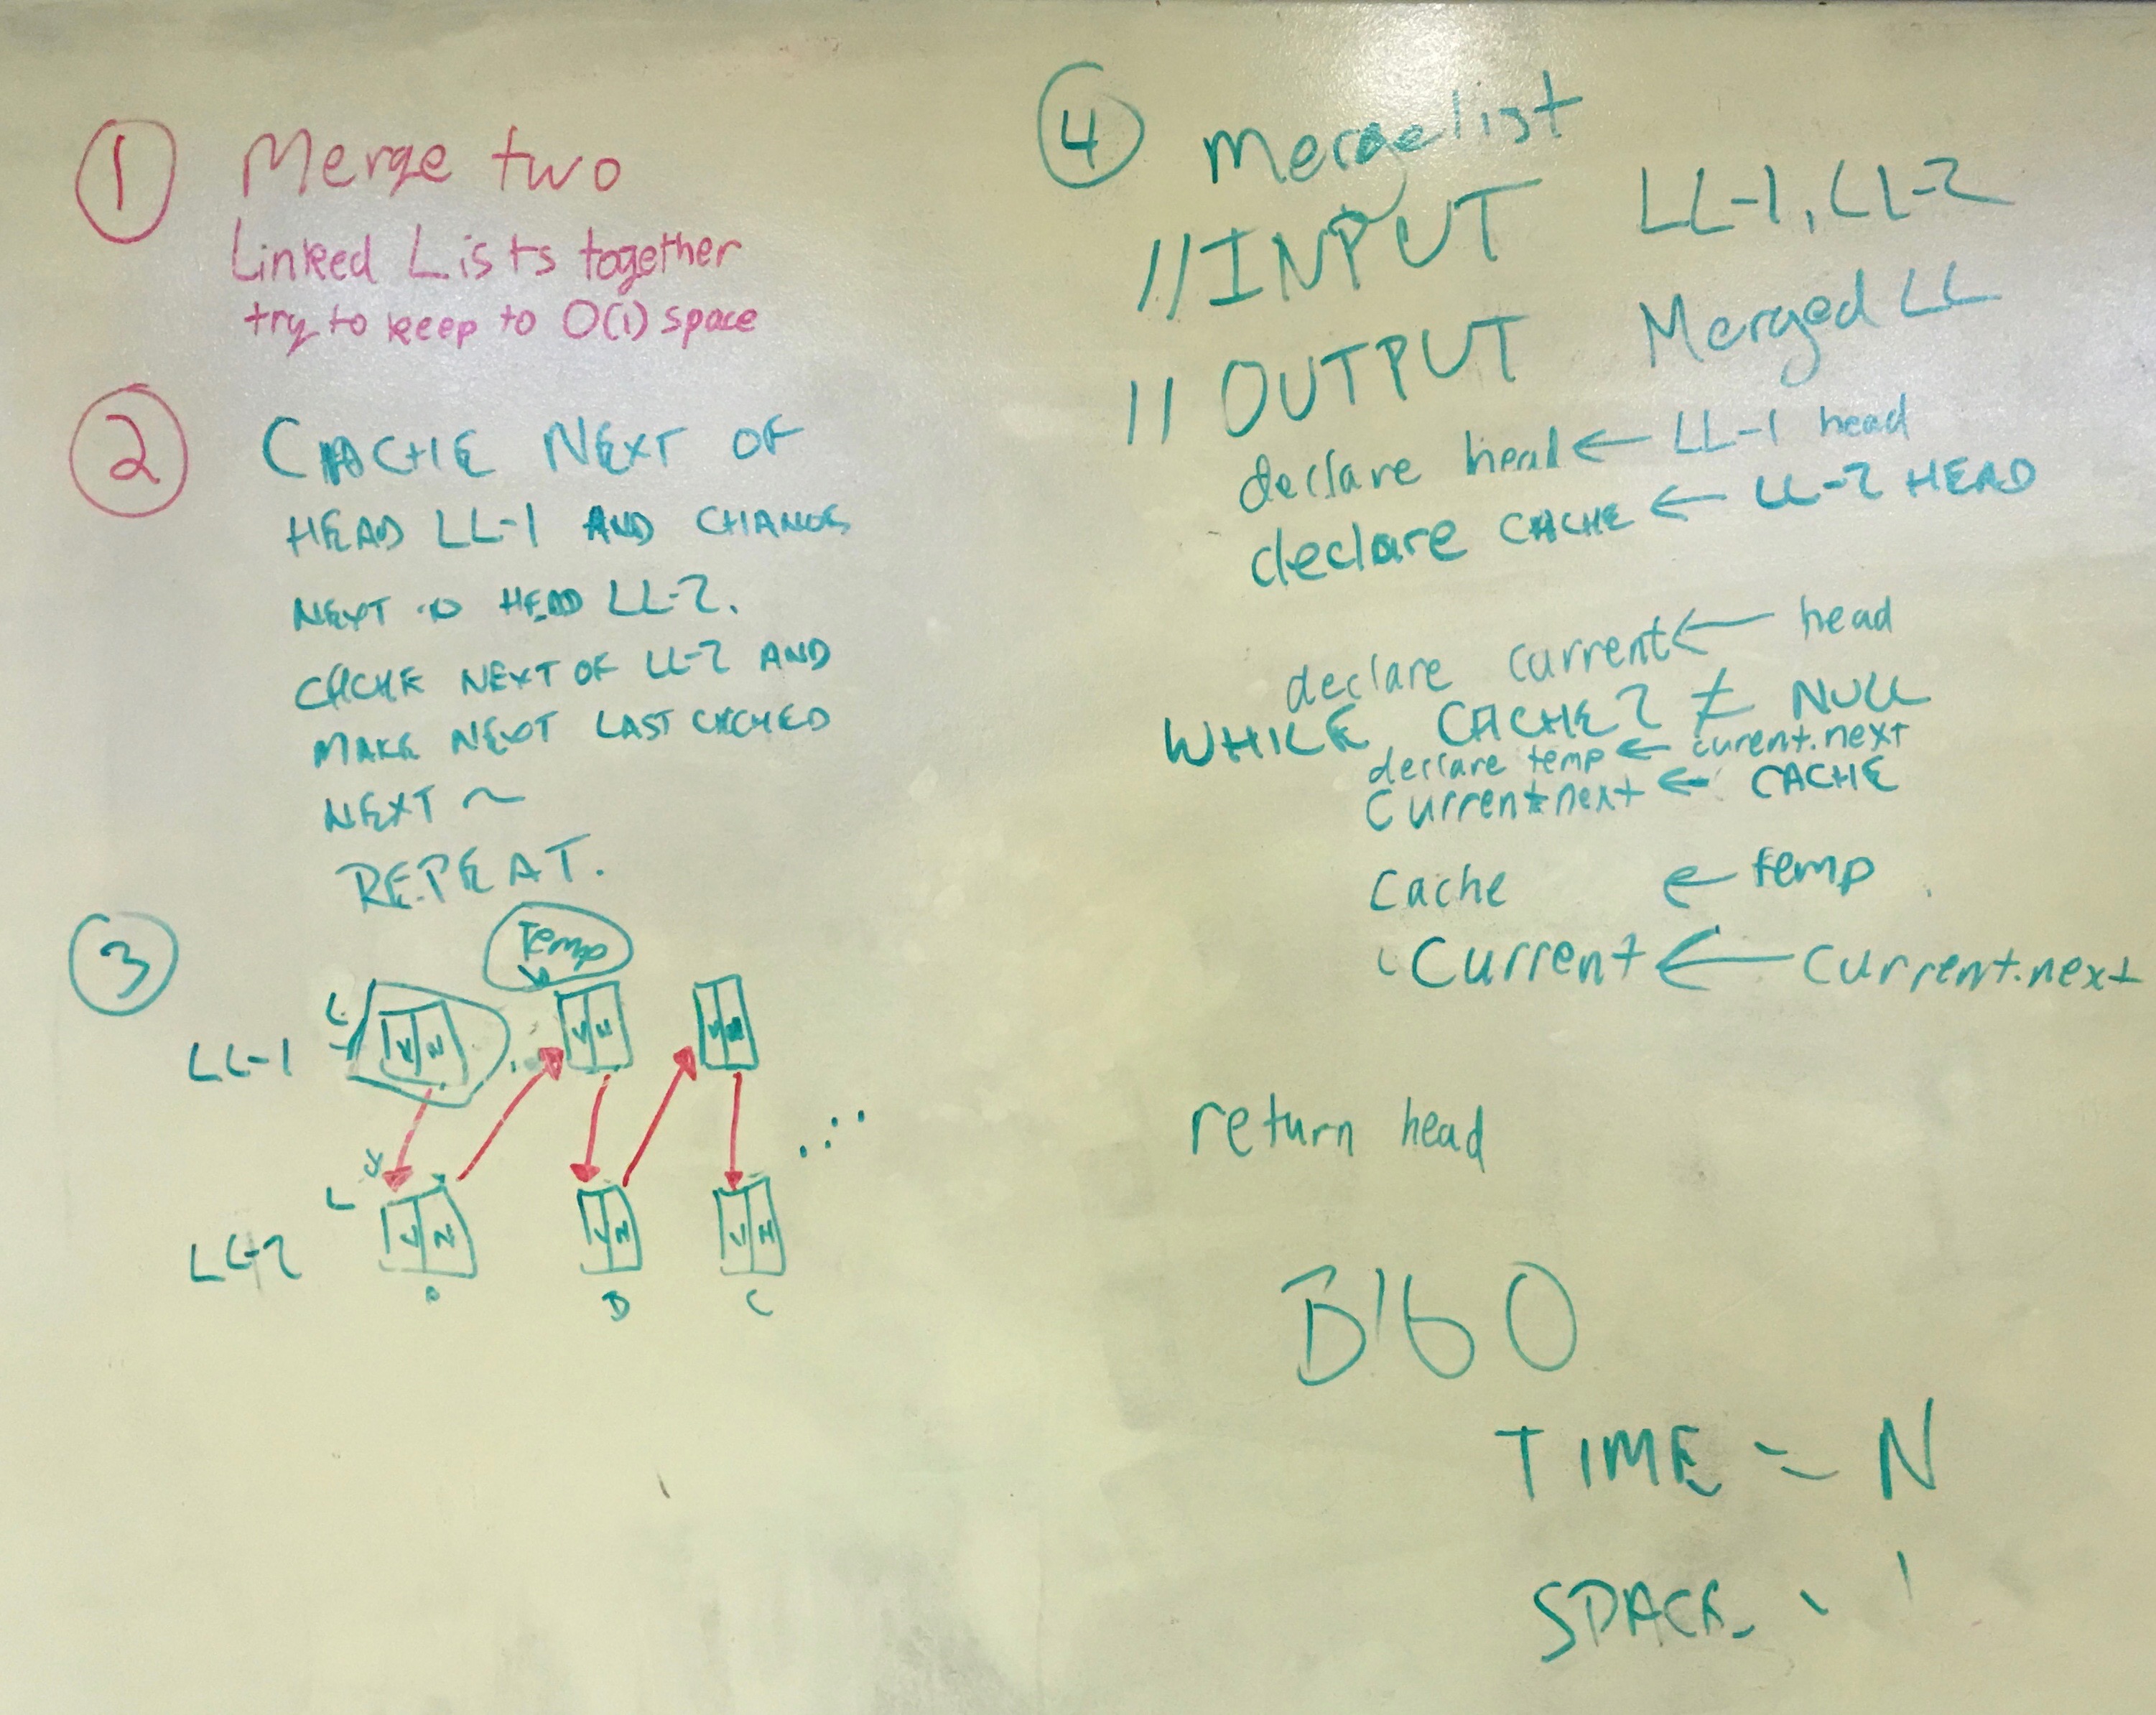 1 Merge two
Linked Lists together
try to keep to O(1) space
2 CACHE NEXT OF
HEAD LL-1 AND CHANGE
NEXT HEAD LL-2.
CACHE NEXT OF LL-2 AND
MAKE NEXT LAST CACHED
NEXT ~
REPEAT.
3
Temp
LL-1
V N
V N
V N
LL-2
V N
V N
V N
C
4 Mergelist
//INPUT LL-1, LL-2
// OUTPUT Merged LL
declare head ← LL-1 head
declare CACHE ← LL-2 HEAD
declare current ← head
WHILE CACHE2 ≠ NULL
declare temp ← curent.next
Current.next ← CACHE
Cache ← temp
Current ← Current.next
return head
BIG O
TIME = N
SPACE 1